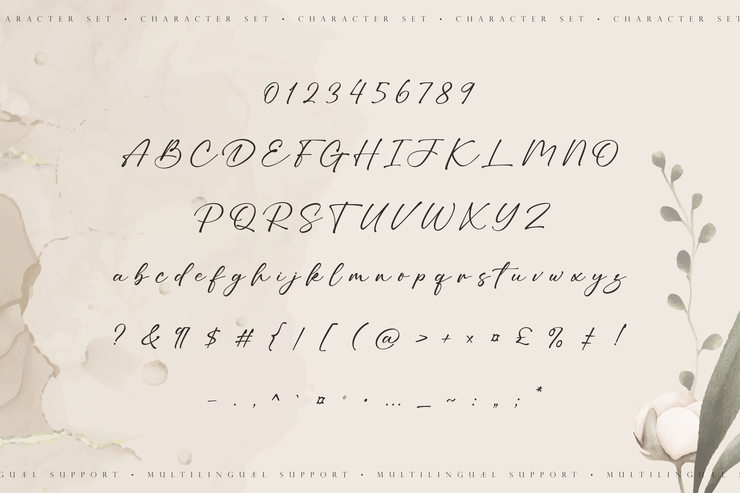 ARACTER SET • CHARACTER SET • CHARACTER SET • CHARACTER SET • CHARACTER SET
0123456789
ABCDEFGHIJKLMNO
PQRSTUVWXYZ
abcdefghijklmnopqrstuvwxyz
? & ¶ $ # { / [ ( @ > + × ¤ £ % ‡ !
– . , ^ ` ¤ ° • … _ ~ : „ ; *
GUÆL SUPPORT • MULTILINGUÆL SUPPORT • MULTILINGUÆL SUPPORT • MULTILINGU SUPP